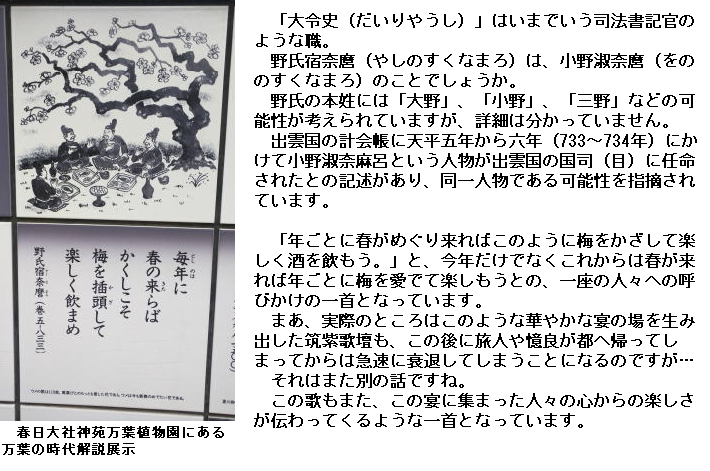 毎年に
としのは
春の来らば
きた
かくしこそ
梅を插頭して
かざ
楽しく飲まめ
野氏宿奈麿(巻五-八三三)
春日大社神苑万葉植物園にある
万葉の時代解説展示
「大令史(だいりやうし)」はいまでいう司法書記官の
ような職。
野氏宿奈麿(やしのすくなまろ)は、小野淑奈麿(をの
のすくなまろ)のことでしょうか。
野氏の本姓には「大野」、「小野」、「三野」などの可
能性が考えられていますが、詳細は分かっていません。
出雲国の計会帳に天平五年から六年(733~734年)にか
けて小野淑奈麻呂という人物が出雲国の国司(目)に任命
されたとの記述があり、同一人物である可能性を指摘され
ています。
「年ごとに春がめぐり来ればこのように梅をかざして楽
しく酒を飲もう。」と、今年だけでなくこれからは春が来
れば年ごとに梅を愛でて楽しもうとの、一座の人々への呼
びかけの一首となっています。
まあ、実際のところはこのような華やかな宴の場を生み
出した筑紫歌壇も、この後に旅人や憶良が都へ帰ってし
まってからは急速に衰退してしまうことになるのですが…
それはまた別の話ですね。
この歌もまた、この宴に集まった人々の心からの楽しさ
が伝わってくるような一首となっています。